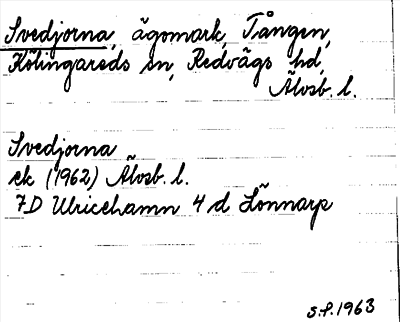 Svedjorna, ägomark, Tången,
Kölingareds sn, Redvägs hd,
Älvsb. l.
Svedjorna
ek (1962) Älvsb. l.
7D Ulricehamn 4 d Lönnarp
S.f. 1963